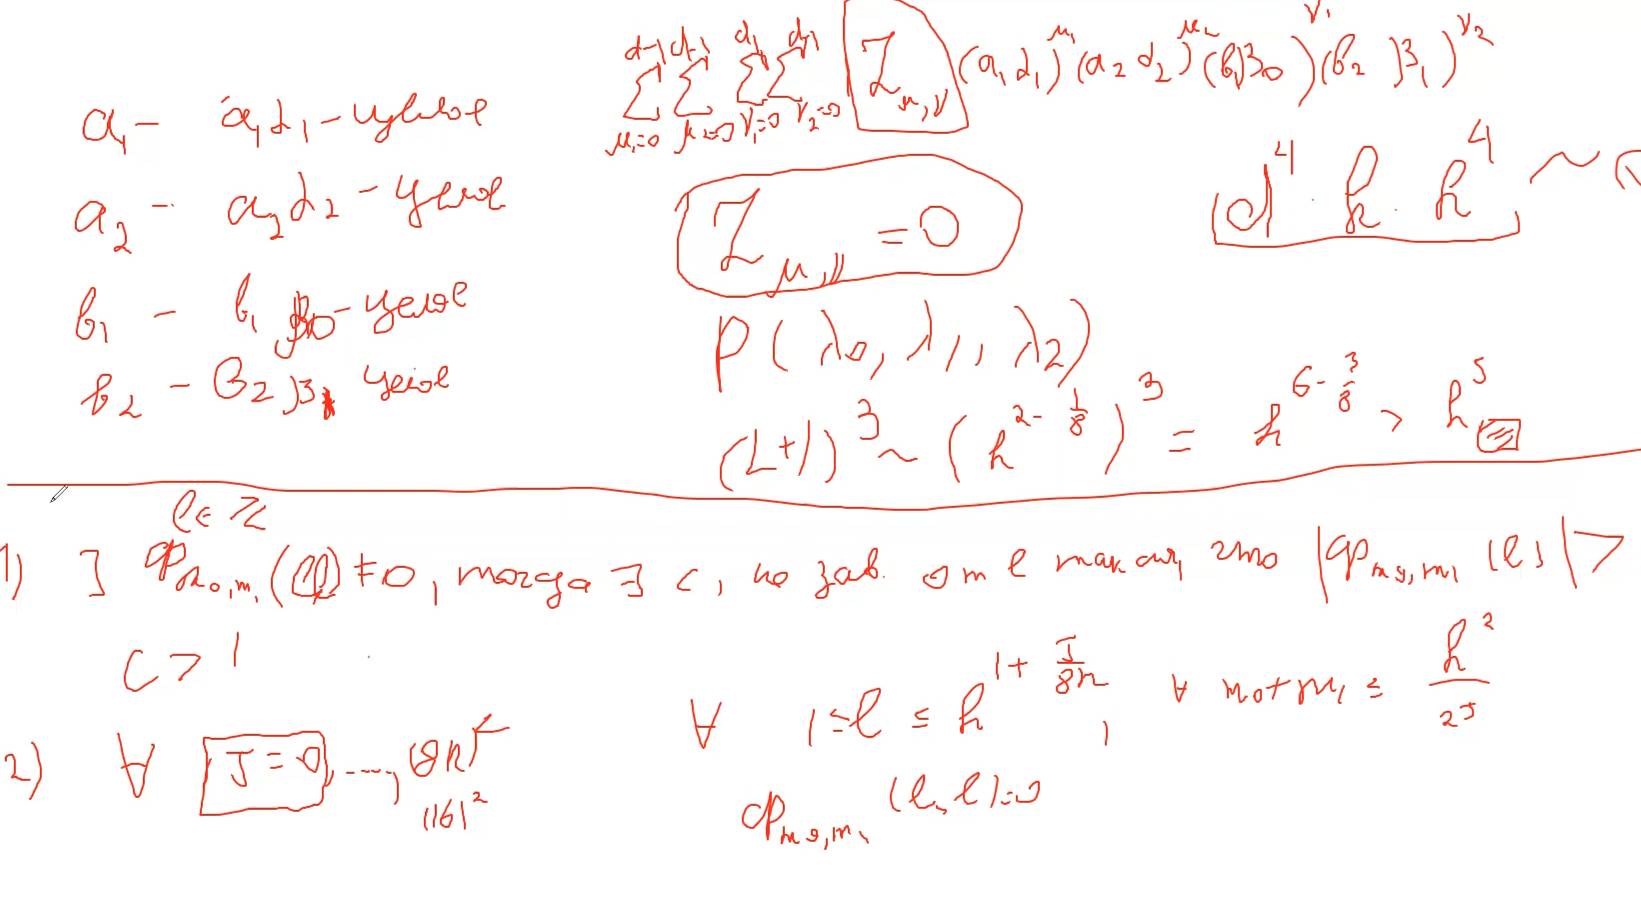 a₁ – a₁α₁ – целое
a₂ – a₂α₂ – целое
b₁ – b₁β₀ – целое
b₂ – b₂β₁ целое
∑_{μ₁=0}^{d-1} ∑_{μ₂=0}^{d-1} ∑_{ν₁=0}^{d-1} ∑_{ν₂=0}^{d-1} Z_{μ,ν} (a₁α₁)^{μ₁} (a₂α₂)^{μ₂} (b₁β₀)^{ν₁} (b₂β₁)^{ν₂}
Z_{μ,ν} = 0
d⁴ · h · h⁴ ~
P(λ₀, λ₁, λ₂)
(L+1)³ ~ (h^{2-1/8})³ = h^{6-3/8} > h⁵
l ∈ ℤ
1) ] φ_{m₀,m₁}(l) ≠ 0, тогда ∃ c, не зав. от l такая, что |φ_{m₀,m₁}(l)| >
c > 1
2) ∀ J = 0, ..., (8n)²
(16)²
∀ 1 ≤ l ≤ h^{1+J/8n}, ∀ m₀+m₁ ≤ h²/2^J
φ_{m₀,m₁}(l, l) = 0